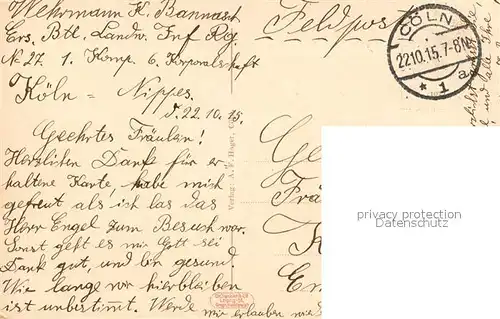 Wehrmann K. Bannasch
Ers. Btl. Landw. Inf Rg.
No 27. 1. Komp. 6. Korporalschaft
Köln = Nippes.
d. 22.10.15.
Geehrtes Fräulen!
Herzlilen Dank für er-
haltene Karte, habe mich
gefreut als ich las das
Herr Engel zum Besuch war.
Sonst geht es mir Gott sei
Dank gut, und bin gesund
Wie lange wir hierbleiben
ist unbestimmt. Werde mir erlauben wie
Feldpos
CÖLN
22.10.15.7-8N
* 1 a
Verlag: A. F.
Ge
Frä
K
En
privacy protection
Datenschutz